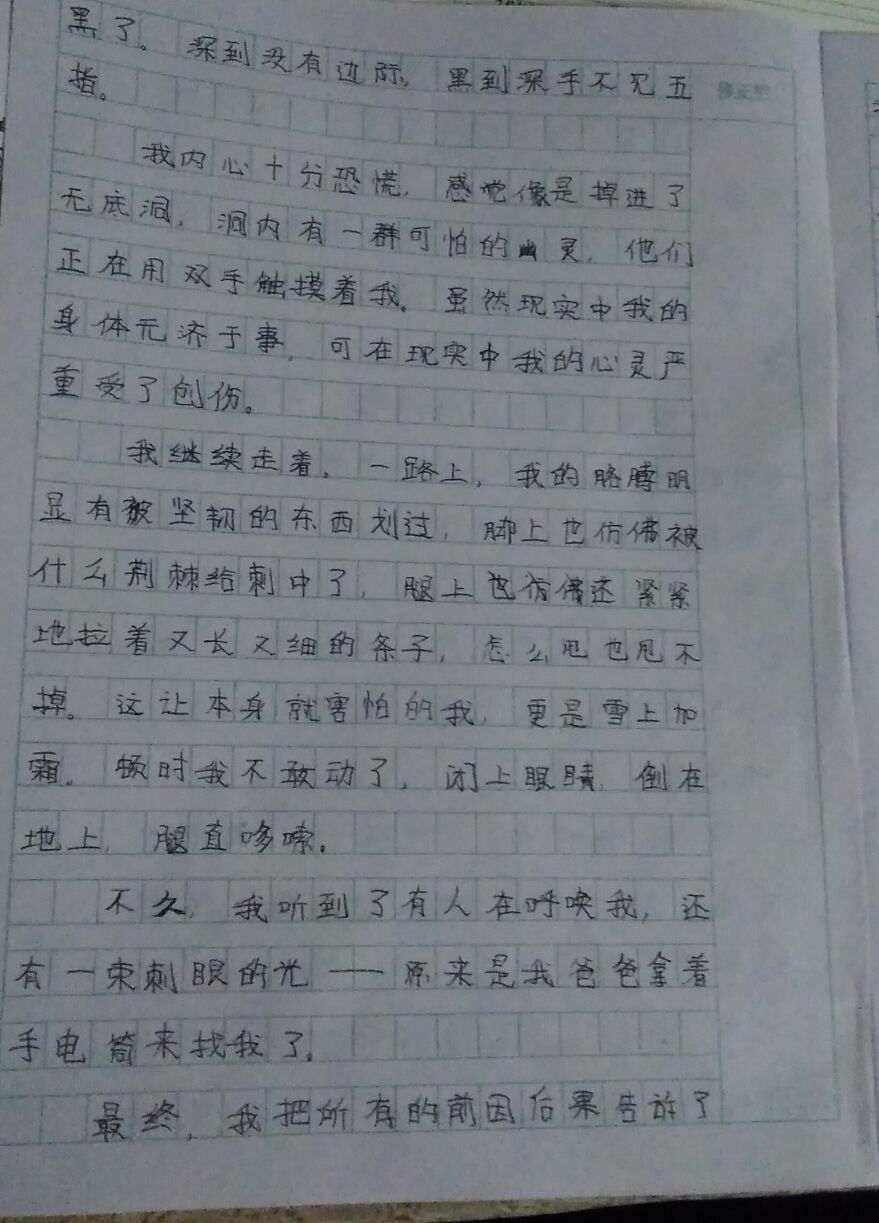 黑了。深到没有边际，黑到深手不见五
指。
修正栏
我内心十分恐慌，感觉像是掉进了
无底洞，洞内有一群可怕的幽灵，他们
正在用双手触摸着我。虽然现实中我的
身体无济于事，可在现实中我的心灵严
重受了创伤。
我继续走着。一路上，我的胳膊明
显有被坚韧的东西划过，脚上也仿佛被
什么荆棘给刺中了，腿上也仿佛还紧紧
地拉着又长又细的条子，怎么甩也甩不
掉。这让本身就害怕的我，更是雪上加
霜。顿时我不敢动了，闭上眼睛，倒在
地上，腿直哆嗦。
不久，我听到了有人在呼唤我，还
有一束刺眼的光——原来是我爸爸拿着
手电筒来找我了。
最终，我把所有的前因后果告诉了